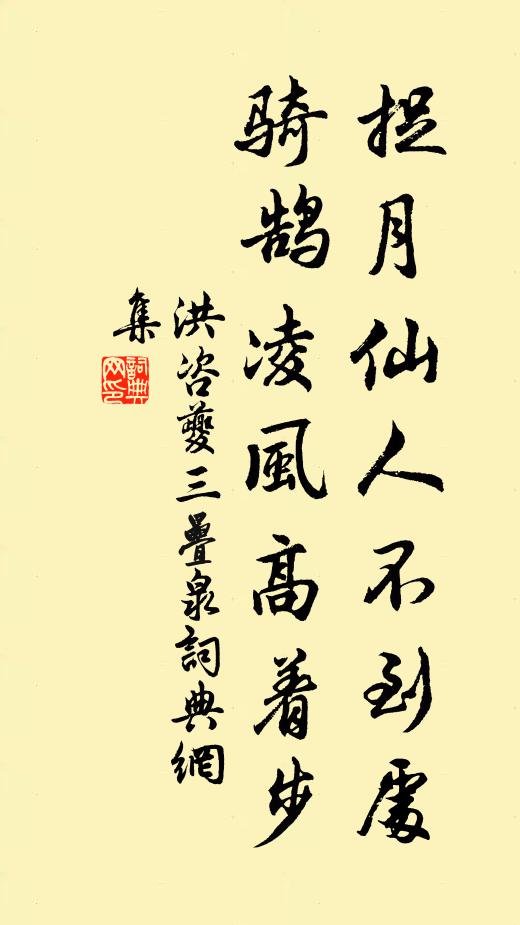 捉月仙人不到處
騎鵠凌風高着步
洪咨夔三疊泉詞典網
集
詞典
网印